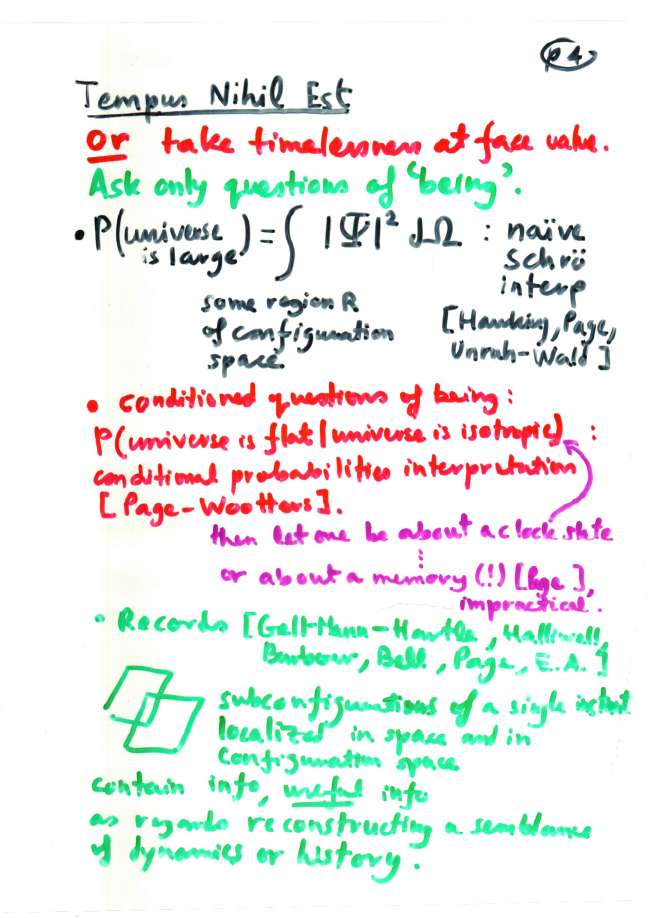 p 4
Tempus Nihil Est
Or take timelessness at face value.
Ask only questions of 'being'.
• P(universe is large) = ∫ |Ψ|² dΩ : naïve
Schrö
interp
some region R
of configuration
space
[Hawking, Page,
Unruh-Wald]
• Conditioned questions of being:
P(universe is flat | universe is isotropic) :
conditional probabilities interpretation
[Page-Wootters].
then let one be about a clock state
or about a memory (!) [Page],
impractical.
• Records [Gell-Mann-Hartle, Halliwell,
Barbour, Bell, Page, E.A.]
subconfigurations of a single instant
localized in space and in
configuration space
contain info, useful info
as regards reconstructing a semblance
of dynamics or history.